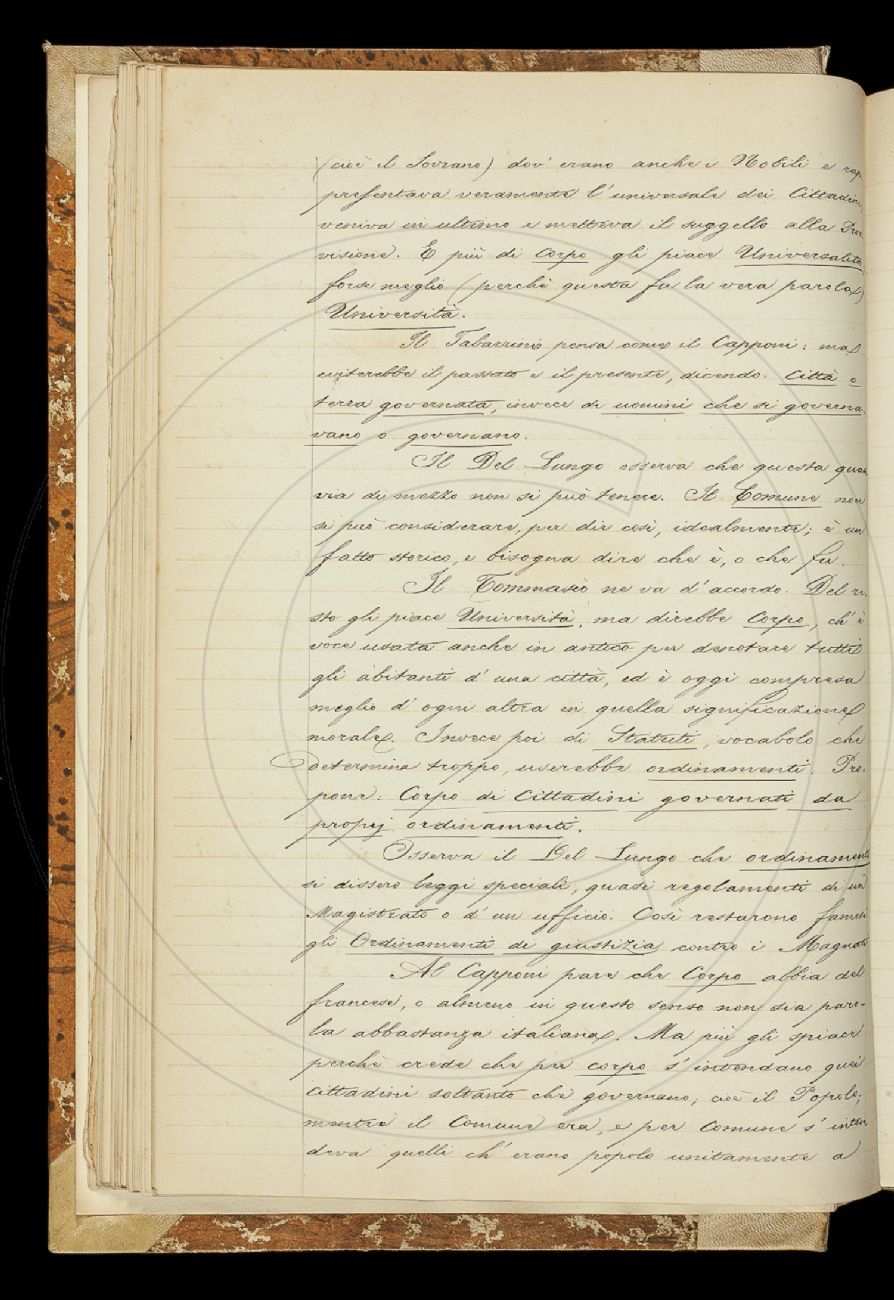 (cioè il Sovrano) dov' erano anche i Nobili e rap-
presentava veramente l' universale dei Cittadini,
veniva in ultimo e metteva il suggello alla Prov-
visione. E più di Corpo gli piace Universalità
forse meglio (perchè questa fu la vera parola)
Università.
Il Tabarrini pensa come il Capponi: ma
eviterebbe il passato e il presente, dicendo: Città o
terra governata, invece di uomini che si governa-
vano o governano.
Il Del Lungo osserva che questa quasi
via di mezzo non si può tenere. Il Comune non
si può considerare, per dir così, idealmente; è un
fatto storico, e bisogna dire che è, o che fu.
Il Tommaseo ne va d' accordo. Del re-
sto gli piace Università, ma direbbe Corpo, ch' è
voce usata anche in antico per denotare tutti
gli abitanti d' una città, ed è oggi compresa
meglio d' ogni altra in quella significazione
morale. Invece poi di Statuti, vocabolo che
determina troppo, userebbe ordinamenti. Pro-
pone: Corpo di Cittadini governati da
proprj ordinamenti.
Osserva il Del Lungo che ordinamenti
si dissero leggi speciali, quasi regolamenti di un
Magistrato o d' un ufficio. Così restarono famosi
gli Ordinamenti di giustizia contro i Magnati
Al Capponi pare che Corpo abbia del
francese, o almeno in questo senso non sia paro-
la abbastanza italiana. Ma più gli spiace
perchè crede che per corpo s' intendano quei
cittadini soltanto che governano; cioè il Popolo;
mentre il Comune era, e per Comune s' inten-
deva quelli ch' erano popolo unitamente a